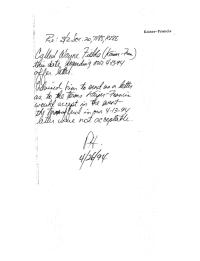 Kaiser-Francis
Re: S/2 Sec. 20, T19S, R33E
Called Wayne Fields (Kaiser-Fran)
this date regarding our 4-13-94
offer letter.
Advised him to send us a letter
as to the terms Kaiser-Francis
would accept in the event
the terms in our 4-13-94
letter were not acceptable.
4/26/94